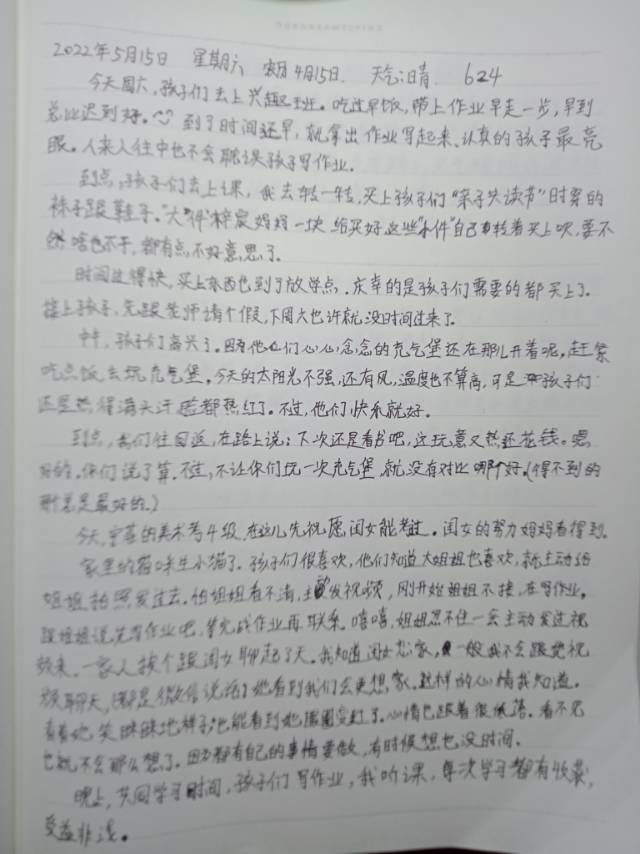 2022年5月15日 星期六 农历4月15日. 天气:晴. 624
今天周六,孩子们去上兴趣班。吃过早饭,带上作业早走一步,早到
总比迟到好。到了时间还早,就拿出作业写起来、认真的孩子最亮
眼。人来人往中也不会耽误孩子写作业。
到点,孩子们去上课,我去转一转,买上孩子们“亲子共读节”时穿的
袜子跟鞋子。梓宸妈妈一块给买好这些自己转着买上呗,要不
然啥也不干,都有点不好意思了。
时间过得快,买上东西也到了放学点.庆幸的是孩子们需要的都买上了.
接上孩子,先跟老师请个假,下周六也许就没时间过来了。
中午,孩子们高兴了。因为他们心心念念的充气堡还在那儿开着呢,赶紧
吃点饭去玩充气堡。今天的太阳光不强,还有风,温度也不算高,可是孩子们
还是热得满头汗脸都热红了。不过,他们快乐就好。
到点,我们往回返,在路上说:下次还是看书吧,这玩意又热还花钱。嗯,
好的。你们说了算。不过,不让你们玩一次充气堡,就没有对比哪个好。(得不到的
那总是最好的。)
今天,的美术考4级,在这儿先祝愿闺女能考过。闺女的努力妈妈看得到.
家里的猫咪生小猫了。孩子们很喜欢,他们知道大姐姐也喜欢,就主动给
姐姐拍照发过去。怕姐姐看不清,发视频,刚开始姐姐不接,在写作业。
跟姐姐说先写作业吧,等完成作业再联系。嘻嘻,姐姐忍不住一会主动发过视
频来。一家人挨个跟闺女聊起了天。我知道闺女想家,一般我不会跟她视
频聊天,都是微信说话,她看到我们会更想家.这样的心情我知道。
看着她笑眯眯地样子,也能看到她眼圈变红了。心情也跟着很低落。看不见
也就不会那么想了。因为都有自己的事情要做,有时候想也没时间。
晚上,共同学习时间,孩子们写作业,我听课,每次学习都有收获,
受益非浅。